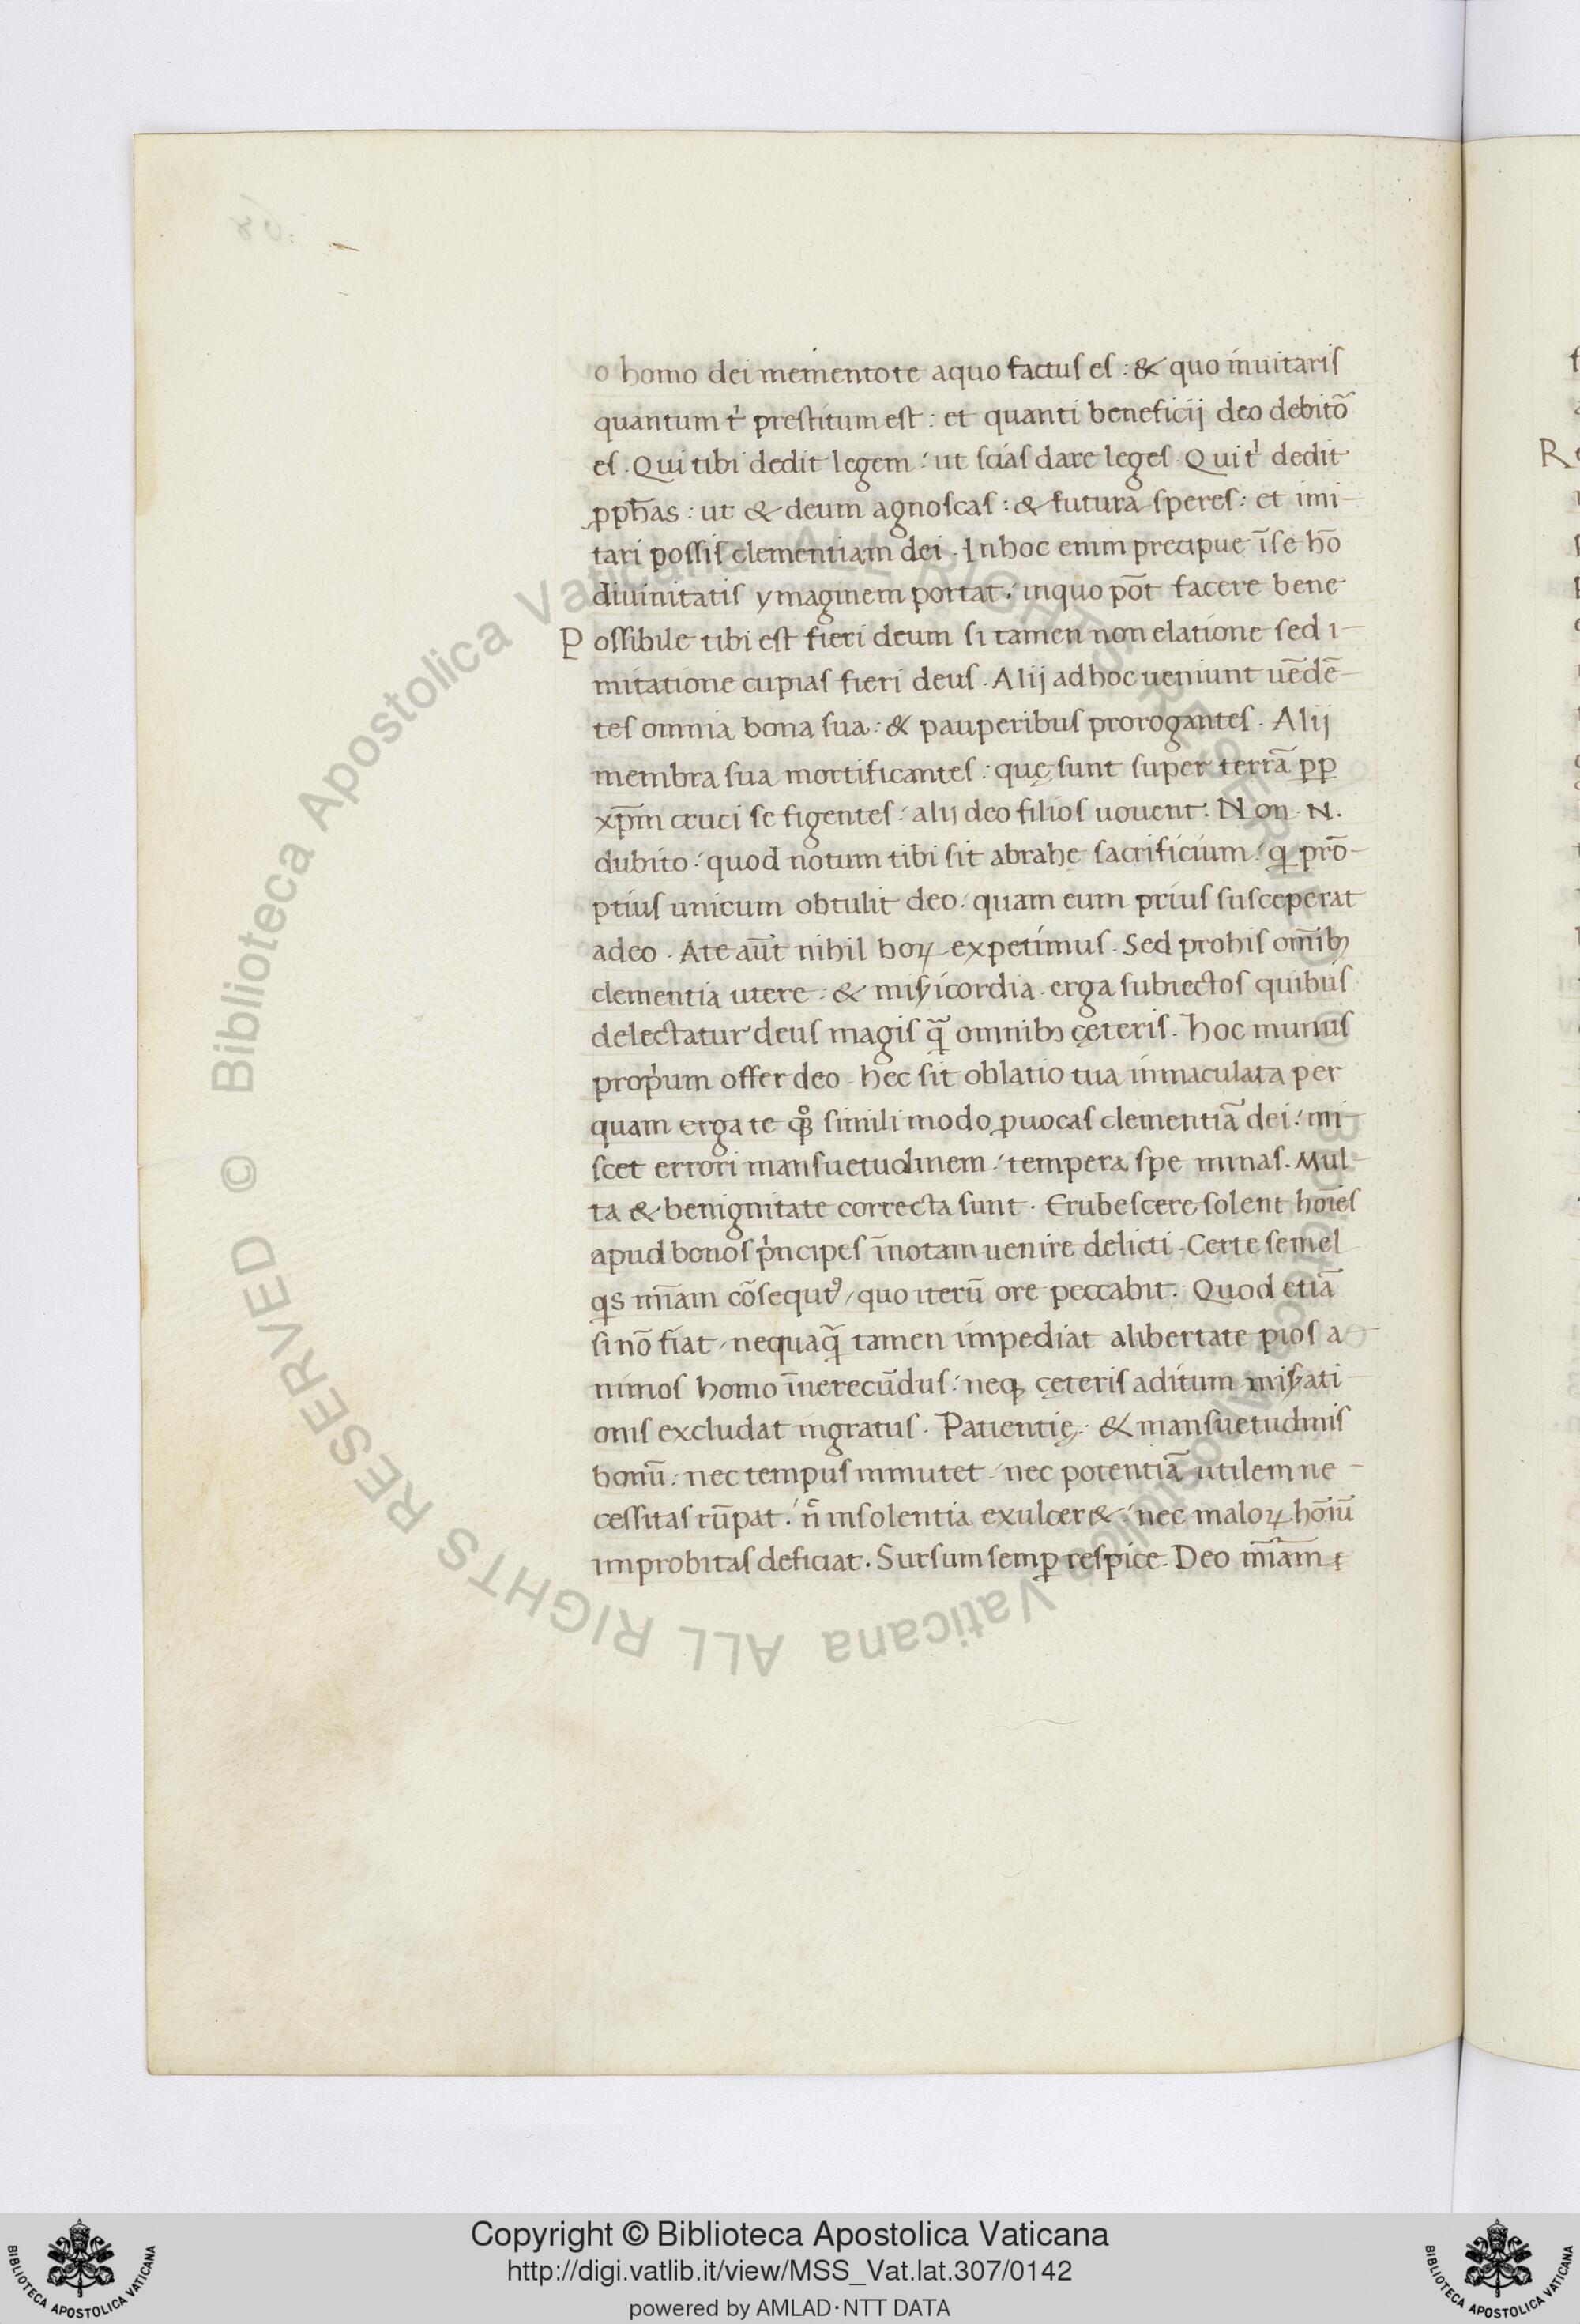 o homo dei memento te aquo factus es : & quo inuitaris
quantum tⁱ prestitum est : et quanti beneficij deo debitõ
es . Qui tibi dedit legem : ut scias dare leges . Qui tⁱ dedit
ꝓph̄as : ut & deum agnoscas : & futura speres : et imi-
tari possis clementiam dei . Inhoc enim precipue ĩ se hõ
diuinitatis ymaginem portat : inquo põt facere bene
Possibile tibi est fieri deum si tamen non elatione sed i-
mitatione cupias fieri deus . Alij adhoc ueniunt uẽdẽ-
tes omnia bona sua : & pauperibus prorogantes . Alij
membra sua mortificantes : quę sunt super terrã ꝑp
xp̄m cruci se figentes : alij deo filios uouent . Non . N .
dubito : quod notum tibi sit abrahę sacrificium : q̲ prõ-
ptius unicum obtulit deo : quam eum prius susceperat
adeo . Ate aũt nihil hoꝝ expetimus . Sed prohis om̃ibꝫ
clementia utere : & misẏicordia . erga subiectos quibus
delectatur deus magis q̃ omnibꝫ cęteris . Hoc munus
propⁱum offer deo . hec sit oblatio tua inmaculata per
quam erga te qꝫͦ simili modo ꝓuocas clementiã dei : mi-
scet errori mansuetudinem : tempera spe minas . Mul-
ta & benignitate correcta sunt . Erubescere solent hoĩes
apud bonos pⁱncipes ĩnotam uenire delicti . Certe semel
q̲s m̃iam cõsequt᷑ , quo iterũ ore peccabit . Quod etiã
si nõ fiat , nequaq̃ tamen impediat alibertate pios a
nimos homo ĩuerecũdus : neqꝫ cęteris aditum misẏati
onis excludat ingratus . Patientię : & mansuetudinis
bonũ : nec tempus inmutet : nec potentiã utilem ne-
cessitas rũpat : ñ insolentia exulcer& : nec maloꝝ hoĩũ
improbitas deficiat . Sursum semꝑ respice . Deo m̃iam
Copyright © Biblioteca Apostolica Vaticana
http://digi.vatlib.it/view/MSS_Vat.lat.307/0142
powered by AMLAD·NTT DATA
© Biblioteca Apostolica Vaticana ALL RIGHTS RESERVED
© Biblioteca Apostolica Vaticana ALL RIGHTS RESERVED
BIBLIOTECA APOSTOLICA VATICANA
BIBLIOTECA APOSTOLICA VATICANA